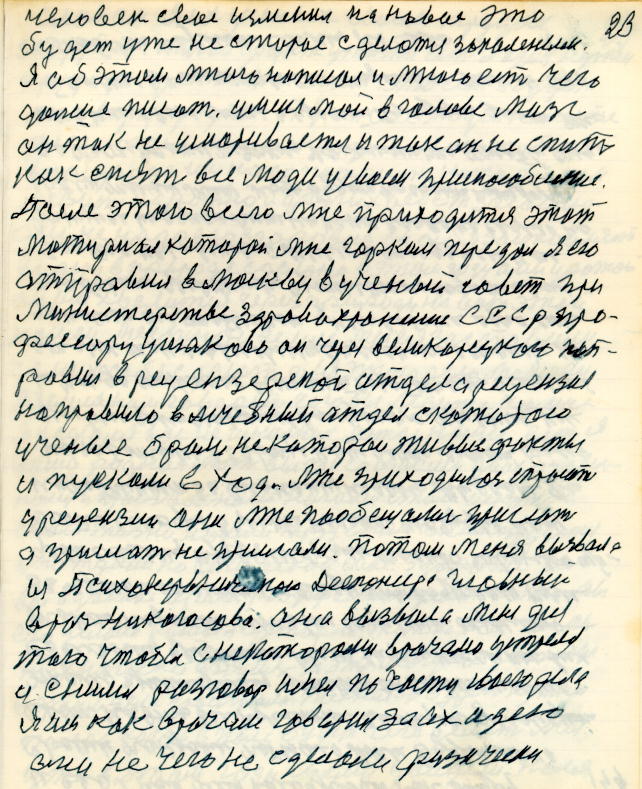 человек свое изменил на новое это 23
будет уже не старое сделатся закаленым.
Я об этом много написал и много ест чего
далше писат. имеия мой в голове мозг
он так не уговаривается и так он не спить
как спят все люди у своем приспособление.
После этого всего мне приходится этот
мотириял которой мне горком передал я его
атправил в москву в ученый совет при
Министерстве Здравохронение СССР про-
фессору он через великорецкого
равил в рецензерской атдел а рецензия
направило в личебный атдел с которого
ученые брали некоторои живые факты
и пускали в ход. Мне приходилос строит
рецензии они мне пообещали прислат
а прислат не прислали. Потом меня вызвала
из Деспонцер главный
врач Никогосова. она вызвала меня для
того чтобы с некоторыми врачами
и с ними разговор имел по части своего дела
Я им как врачам говорил за их адено
они не чего не сделали физически